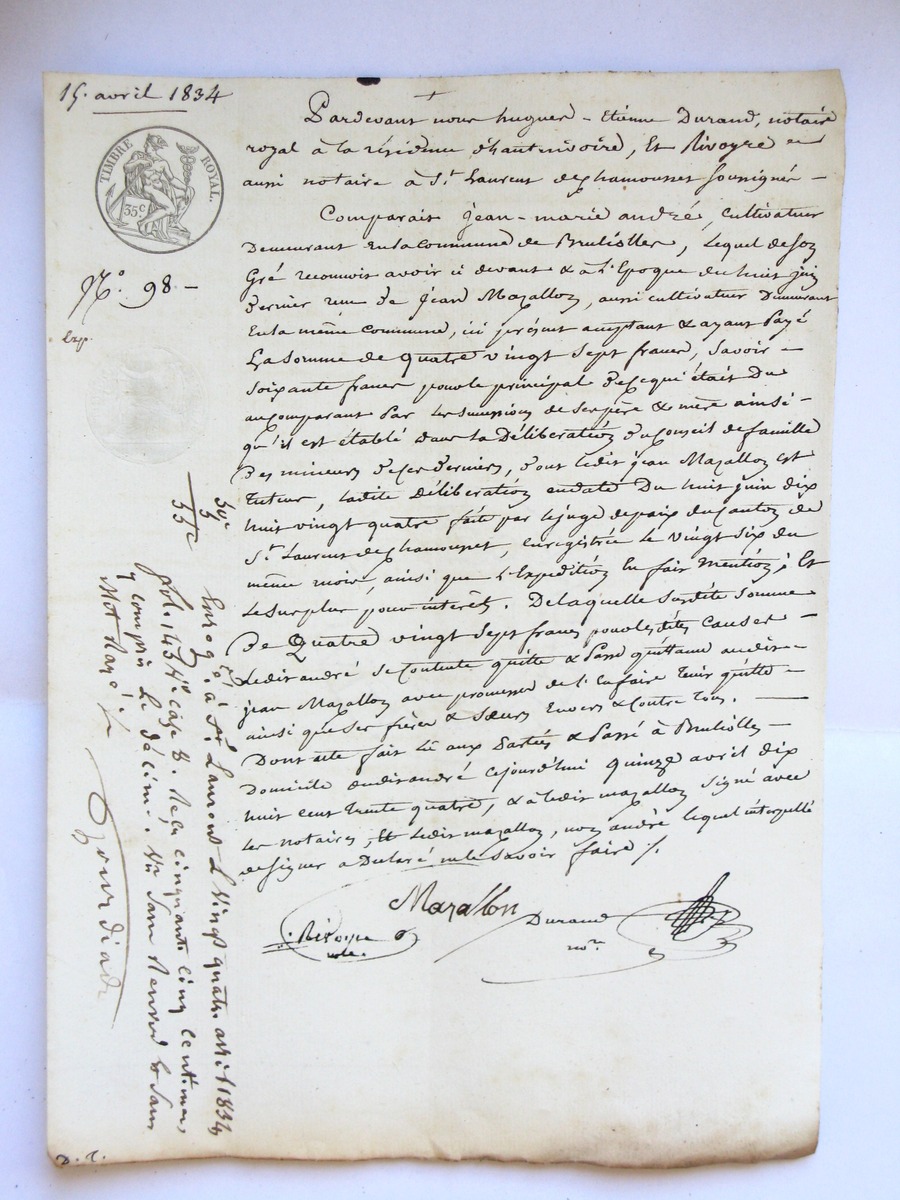 15. avril 1834
TIMBRE ROYAL.
35c
N.° 98 -
Exp.
Pardevant nous hugues - Etienne Durand, notaire
royal à la résidence d'hauterivoire, Et Rivoyre en
aussi notaire à S.t Laurent de Chamousset soussignés -
Comparait jean-marie andré, cultivateur
Demeurant En la commune de Brulliolles, Lequel de son
Gré reconnoit avoir ci devant & à l'Epoque du huit juin
dernier reçu De jean Mazallon, aussi cultivateur Demeurant
En la même commune, ici présent acceptant & ayant Payé
La Somme de Quatre vingt Sept francs, Savoir -
Soixante francs pour le principal De ce qui était Du
au comparant Par les successions de ses père & mère ainsi -
qu'il est établi dans la Délibération du Conseil de famille
Des mineurs de ces derniers, dont ledit jean Mazallon est
Tuteur, ladite Délibération en date Du huit juin dix
huit vingt quatre faite par le juge de paix du canton de
S.t Laurent de Chamousset, enregistrée Le vingt six du
même mois, ainsi que l'Expédition En fait Mention; Et
Le surplus pour intérêts. De laquelle susdite Somme
De Quatre vingt Sept francs pour les dites Causes -
Ledit andré se Contente quitte & Passe quittance audit -
jean Mazallon avec promesse de l'En faire Tenir quitte -
ainsi que ses frères & Sœurs Envers & Contre Tous.
Dont acte fait Lu aux Parties & Passé à Brulliolles -
Domicile dudit andré Cejourd'hui Quinze avril dix
huit cent trente quatre, & a ledit mazallon Signé avec
Les notaires, Et Ledit mazallon, non andré lequel interpellé
de signer a Déclaré ne le Savoir faire /.
Mazallon
Rivoyre
note.
Durand
no.re
55c
Enreg.é à S.t Laurent le vingt quatre avril 1834
fol. 143 v.o case 8. Reçu cinquante cinq centimes
y compris le décime. Vu sans Renvoi & sans
Mot Rayé.
D. r.